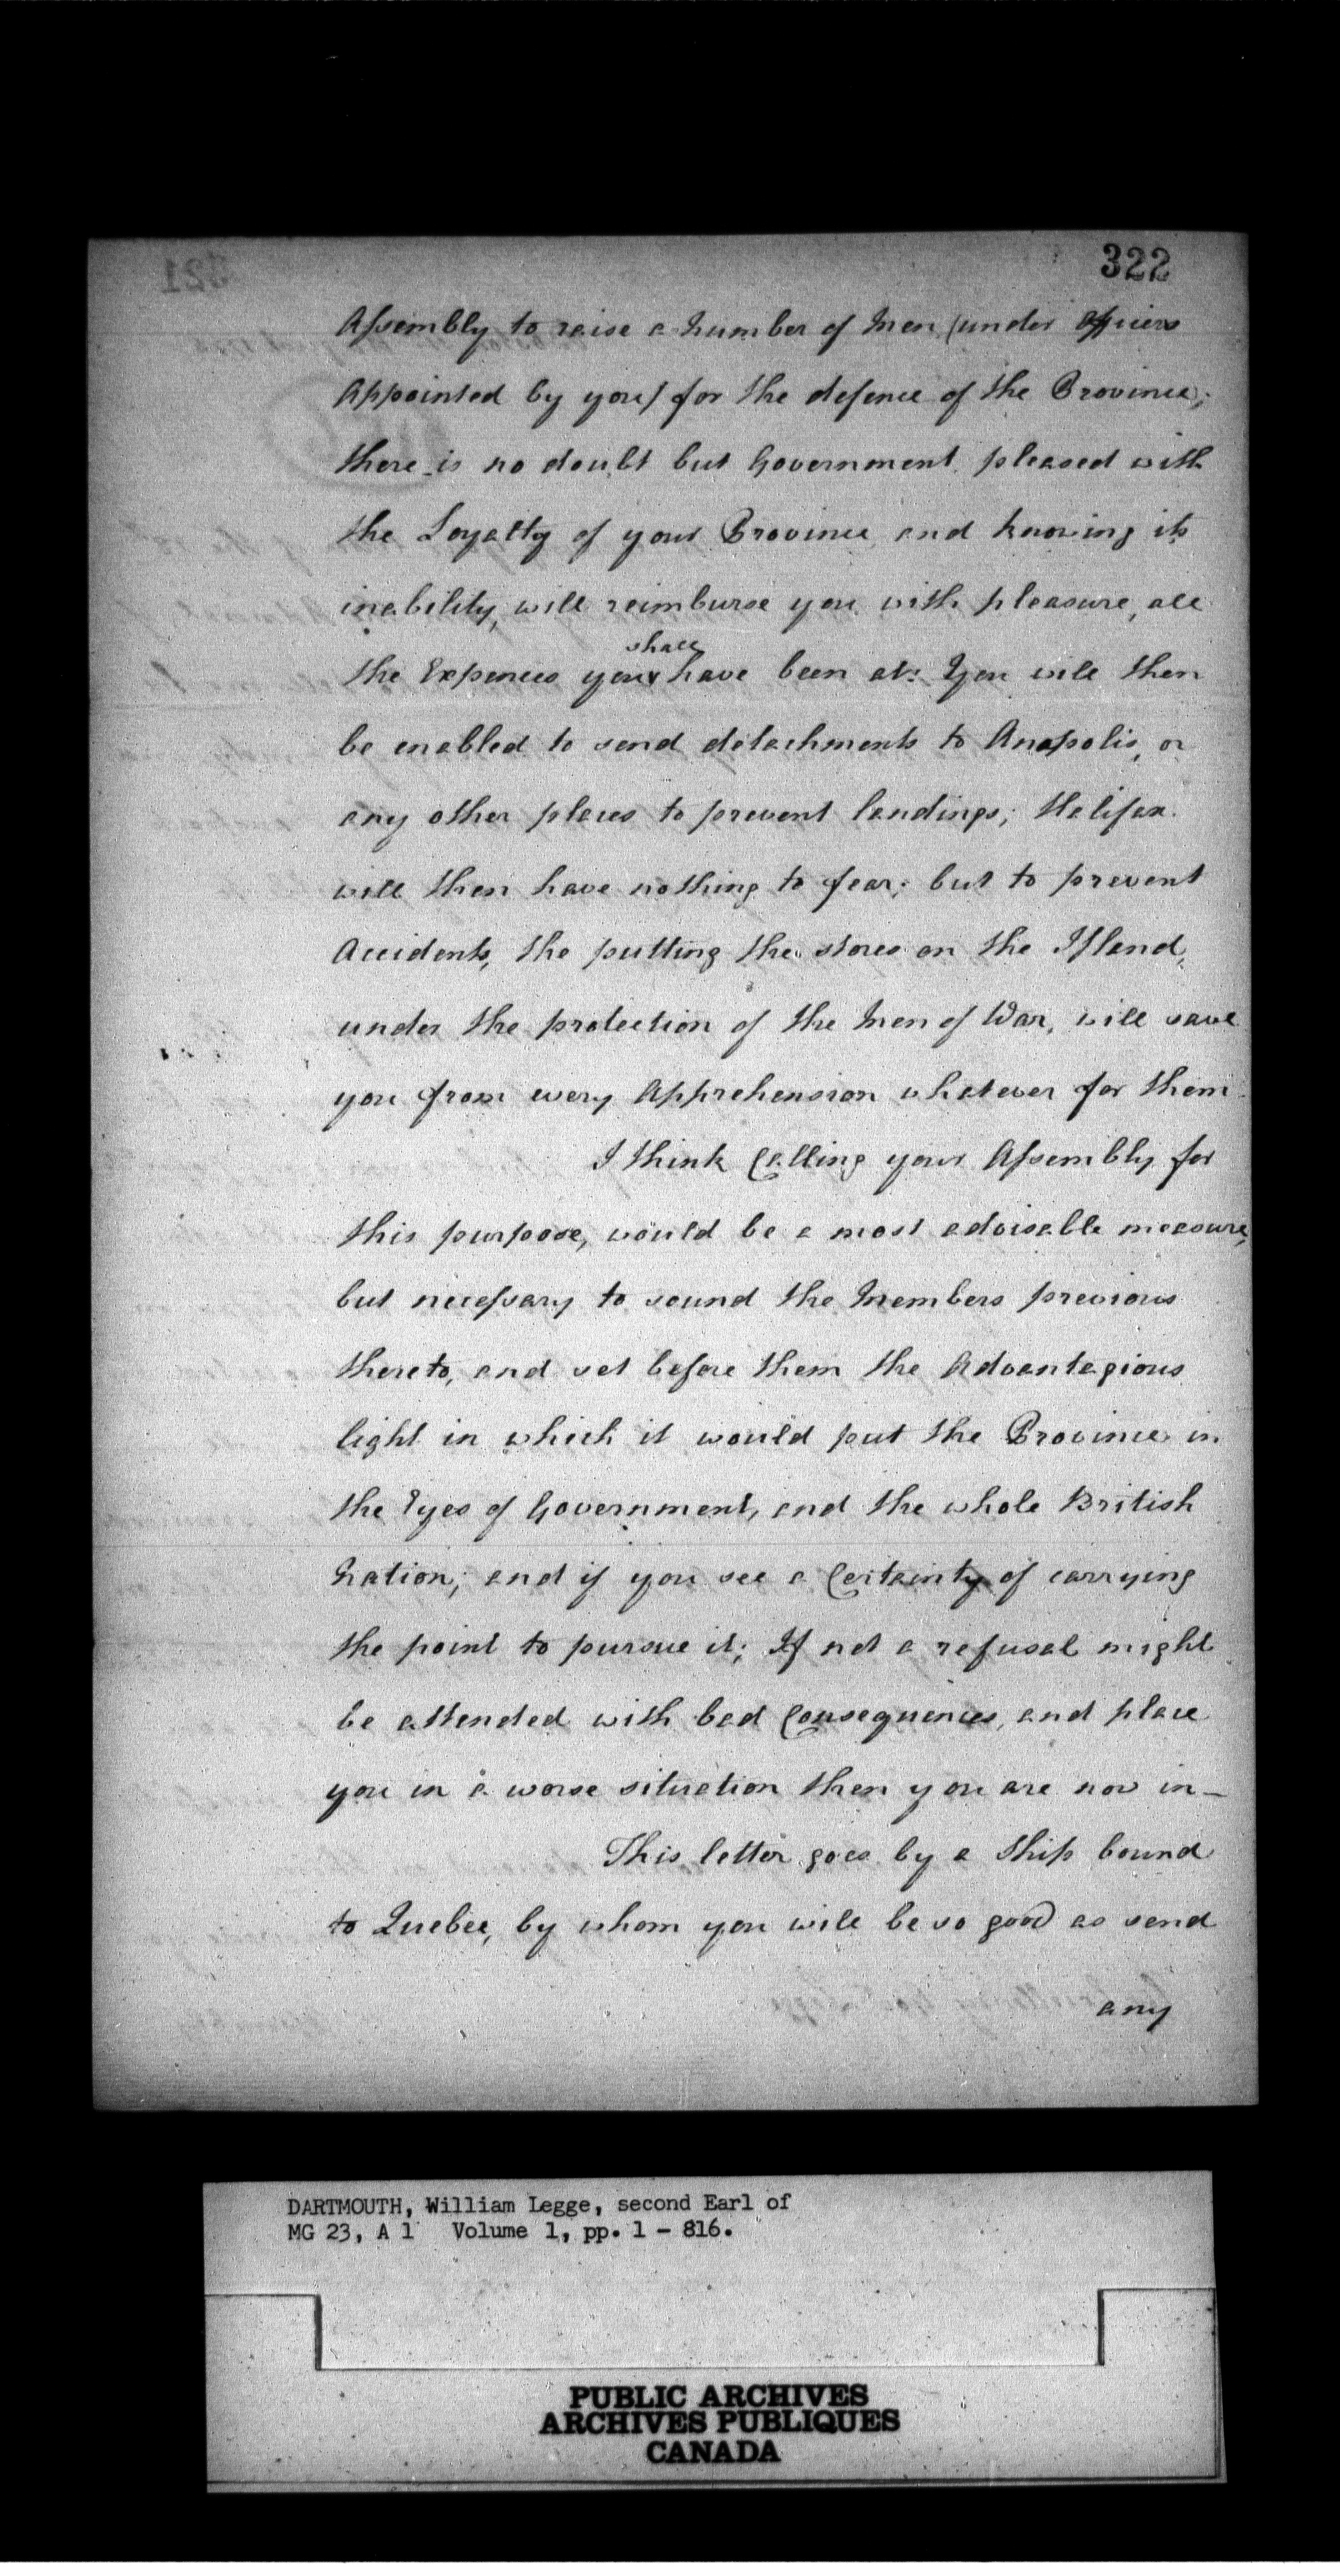 322
Assembly to raise a Number of Men (under Officers
Appointed by you) for the defence of the Province;
there is no doubt but Government pleased with
the Loyalty of your Province and knowing its
inability, will reimburse you with pleasure, all
shall
the Expences you have been at: You will then
be enabled to send detachments to Anapolis, or
any other places to prevent landings; Halifax
will then have nothing to fear; but to prevent
Accidents, the putting the stores on the Island,
under the protection of the Men of War, will save
you from every Apprehension whatever for them.
I think Calling your Assembly for
this purpose, would be a most adviseable measure,
but necessary to sound the Members previous
thereto, and set before them the Advantagious
light in which it would put the Province in
the Eyes of Government, and the whole British
Nation; and if you see a Certainty of carrying
the point to pursue it; If not a refusal might
be attended with bad Consequences, and place
you in a worse situation then you are now in—
This letter goes by a Ship bound
to Quebec, by whom you will be so good as send
any
DARTMOUTH, William Legge, second Earl of
MG 23, A 1 Volume 1, pp. 1 - 816.
PUBLIC ARCHIVES
ARCHIVES PUBLIQUES
CANADA